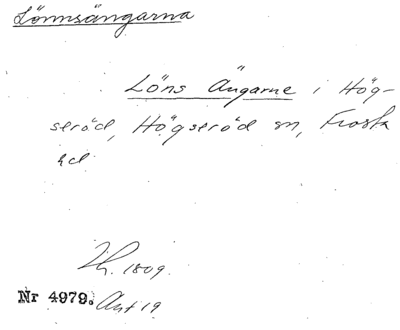 Lönnsängarna
Löns Ängarne i Hög-
seröd, Högseröd sn, Frosta
hd.
1809.
Nr 4979. Akt 19